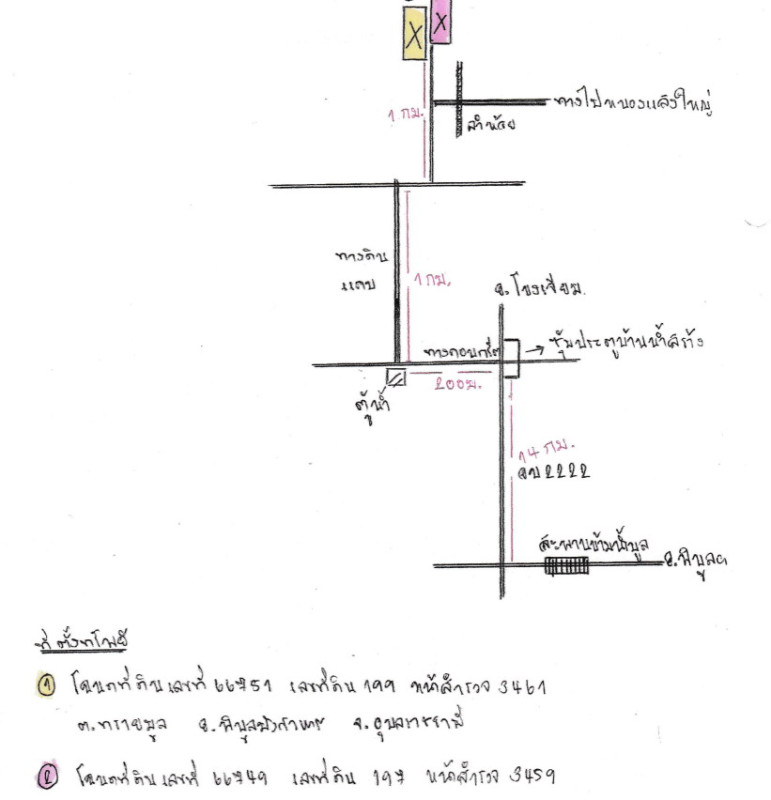 X X
ทางไปหนองแสงใหญ่
1 กม.
ลำห้วย
ทางดิน
แคบ
1 กม.
อ.โขงเจียม.
ทางคอนกรีต
→ ซุ้มประตูบ้านน้ำสร้าง
200ม.
ตู้น้ำ
14 กม.
อบ 2222
สะพานข้ามน้ำมูล
อ.พิบูลฯ
ที่ตั้งทรัพย์
1 โฉนดที่ดินเลขที่ 66751 เลขที่ดิน 199 หน้าสำรวจ 3461
ต.ทรายมูล อ.พิบูลมังสาหาร จ.อุบลราชธานี
2 โฉนดที่ดินเลขที่ 66749 เลขที่ดิน 197 หน้าสำรวจ 3459